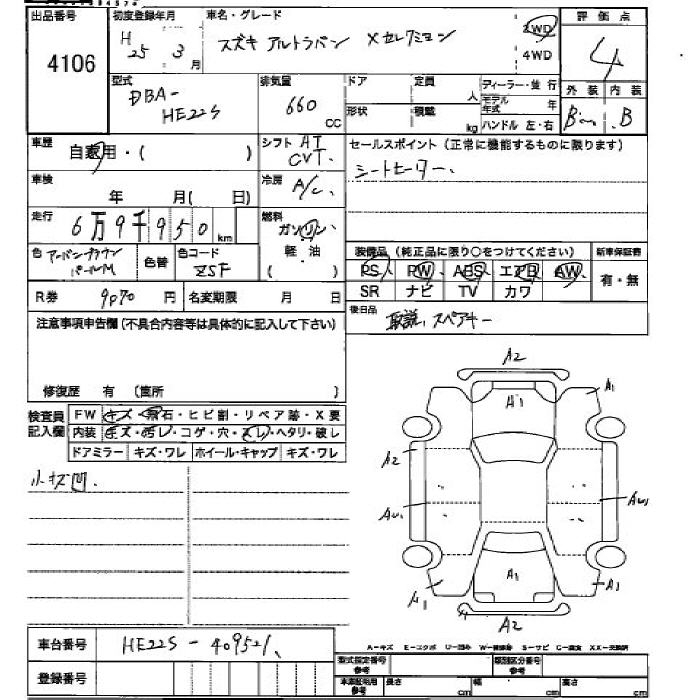 出品番号 初度登録年月 車名・グレード 評価点
4106 H 25 3月 スズキ アルトラパン Xセレクション 2WD 4WD 4
型式 DBA-HE22S 排気量 660 CC ドア 定員 人 ディーラー・並行 外装 内装
形状 積載 kg モデル年式 年 ハンドル 左・右 B
車歴 自家用・( ) シフト AT CVT. セールスポイント(正常に機能するものに限ります)
車検 年 月( 日) 冷房 A/C. シートヒーター.
走行 6万9千950 km 燃料 ガソリン 軽・油 ( )
色 アーバンブラウンパールM 色替 色コード ZSF 装備品(純正品に限り○をつけてください) 新車保証書
PS PW ABS エアB AW 有・無
R券 9970円 名変期限 月 日 SR ナビ TV カワ
注意事項申告欄(不具合内容等は具体的に記入して下さい) 後日品 取説、スペアキー
修復歴 有 (箇所 )
検査員記入欄 FW キズ・飛石・ヒビ割・リペア跡・X要
内装 キズ・汚レ・コゲ・穴・スレ・ヘタリ・破レ
ドアミラー キズ・ワレ ホイール・キャップ キズ・ワレ
小キズ凹.
A2
A1 A1
A2
AU1 AU1
A1
A1 A1
A2
A-キズ E-エクボ U-凹み W-補修跡 S-サビ C-腐食 XX-交換済
車台番号 HE22S-409521
登録番号 型式指定番号 参考 類別区分番号 参考
車庫証明用 参考 長さ cm 幅 cm 高さ cm